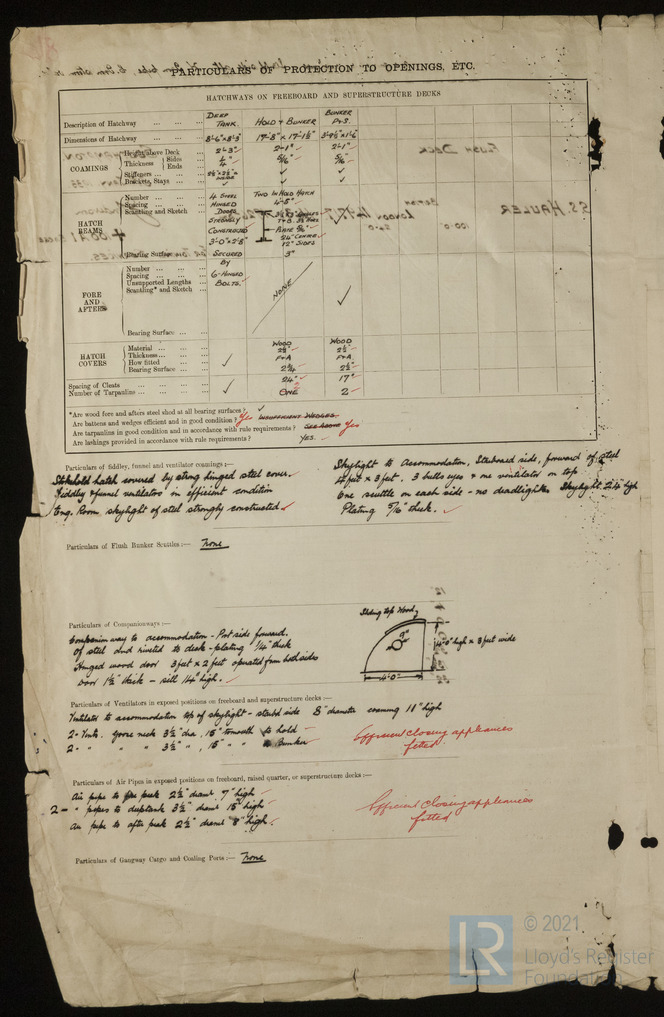 PARTICULARS OF PROTECTION TO OPENINGS, ETC.
HATCHWAYS ON FREEBOARD AND SUPERSTRUCTURE DECKS
Description of Hatchway ... ... ... DEEP TANK. HOLD & BUNKER BUNKER P & S.
Dimensions of Hatchway ... ... ... 8'-6" x 8'-3" 17'-8" x 17'-1½"
COAMINGS
Height above Deck 2'-3" 2'-1" 2'-1"
Thickness Sides ¼" 5/16" 5/16"
Ends
Stiffeners ... ... ✓ ✓
Brackets, Stays ... ✓ ✓ ✓
HATCH BEAMS
Number ... ... ... 4 STEEL TWO IN HOLD HATCH
Spacing ... ... ... HINGED 4'-5"
Scantling and Sketch ... DOORS
STRONGLY
CONSTRUCTED
3'-0" x 2'-8" 12" SIDES
Bearing Surface ... ... SECURED 3"
BY
FORE AND AFTERS
Number ... ... ... 6-HINGED
Spacing ... ... ... BOLTS.
Unsupported Lengths ...
Scantling* and Sketch ... NONE ✓
Bearing Surface ... ...
HATCH COVERS
Material ... ... ... WOOD WOOD
Thickness ... ... ... 2½" 2½"
How fitted ... ... ✓ F & A F & A
Bearing Surface ... ... 2¾ 2½"
Spacing of Cleats ... ... ... ✓ 24" 17"
Number of Tarpaulins ... ... ... ONE 2
*Are wood fore and afters steel shod at all bearing surfaces? ✓
Are battens and wedges efficient and in good condition? Yes INSUFFICIENT WEDGES.
Are tarpaulins in good condition and in accordance with rule requirements? SEE ABOVE Yes
Are lashings provided in accordance with rule requirements? YES.
Particulars of fiddley, funnel and ventilator coamings:—
Stokehold hatch covered by strong hinged steel cover.
Fiddley & funnel ventilators in efficient condition
Eng. Room skylight of steel strongly constructed.
Skylight to Accommodation, Starboard side, forward of steel
4 feet x 3 feet. 3 bulls eyes & one ventilator on top.
One scuttle on each side - no deadlights. Skylight 2'4" high
Plating 5/16" thick.
Particulars of Flush Bunker Scuttles:— None
Particulars of Companionways:—
Companion way to accommodation - Port side forward.
of steel and riveted to deck - plating ¼" thick
Hinged wood door 3 feet x 2 feet operated from both sides
Door 1½" thick - sill 14" high.
Sliding top Wood
9"
4'-0" high x 3 feet wide
4'-0"
Particulars of Ventilators in exposed positions on freeboard and superstructure decks:—
Ventilator to accommodation top of skylight - starbd side 8" diameter coaming 11" high
2 - Vents. Goose neck 3½" dia, 15" to mouth to hold -
2 - " " " 3½" " , 15" " " Bunker
Efficient closing appliances
fitted.
Particulars of Air Pipes in exposed positions on freeboard, raised quarter, or superstructure decks:—
Air pipe to fore peak 2½" diamr 7" high
2 - " pipes to deeptank 3½" diamr 15" high
Air pipe to after peak 2½" diamr 8" high
Efficient closing appliances
fitted
Particulars of Gangway Cargo and Coaling Ports:— None
LR © 2021
Lloyd's Register
Foundation